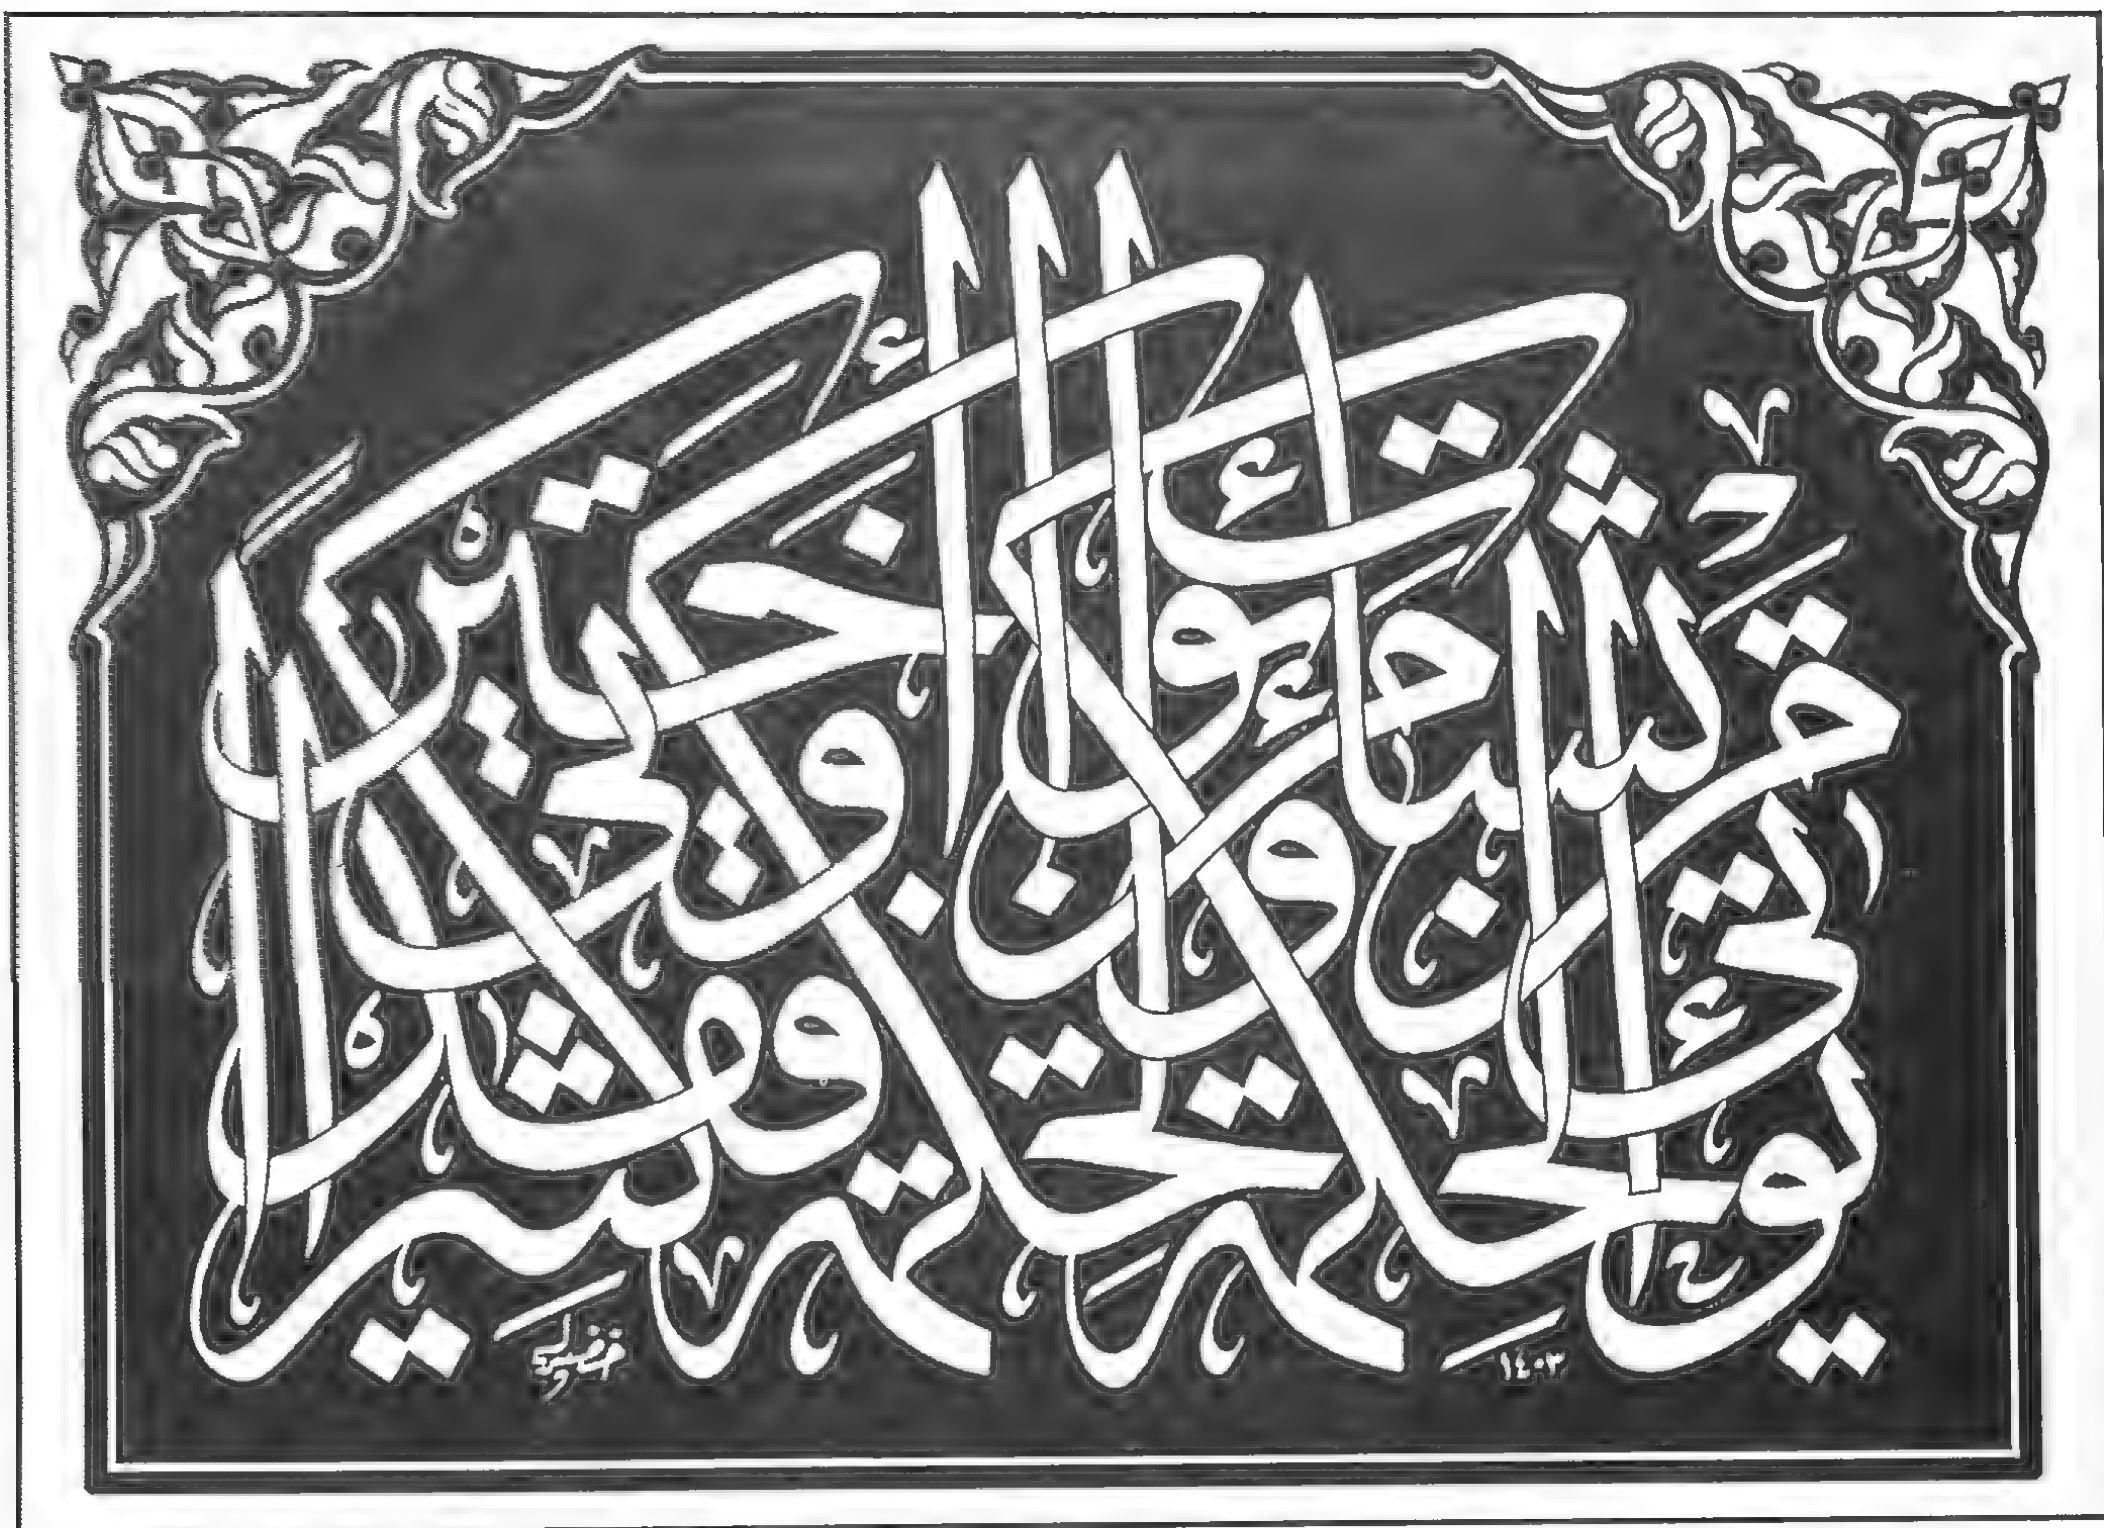 يؤتي الحكمة من يشاء ومن يؤت الحكمة فقد أوتي خيرا كثيرا
١٤٠٣